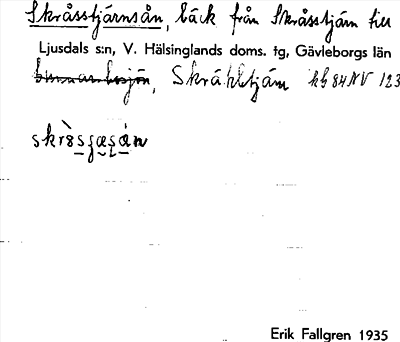 Skråsstjärnsån, bäck från Skråsstjärn till
Ljusdals s:n, V. Hälsinglands doms. tg, Gävleborgs län
Skräkltjärn kb 84 NV 123
Erik Fallgren 1935